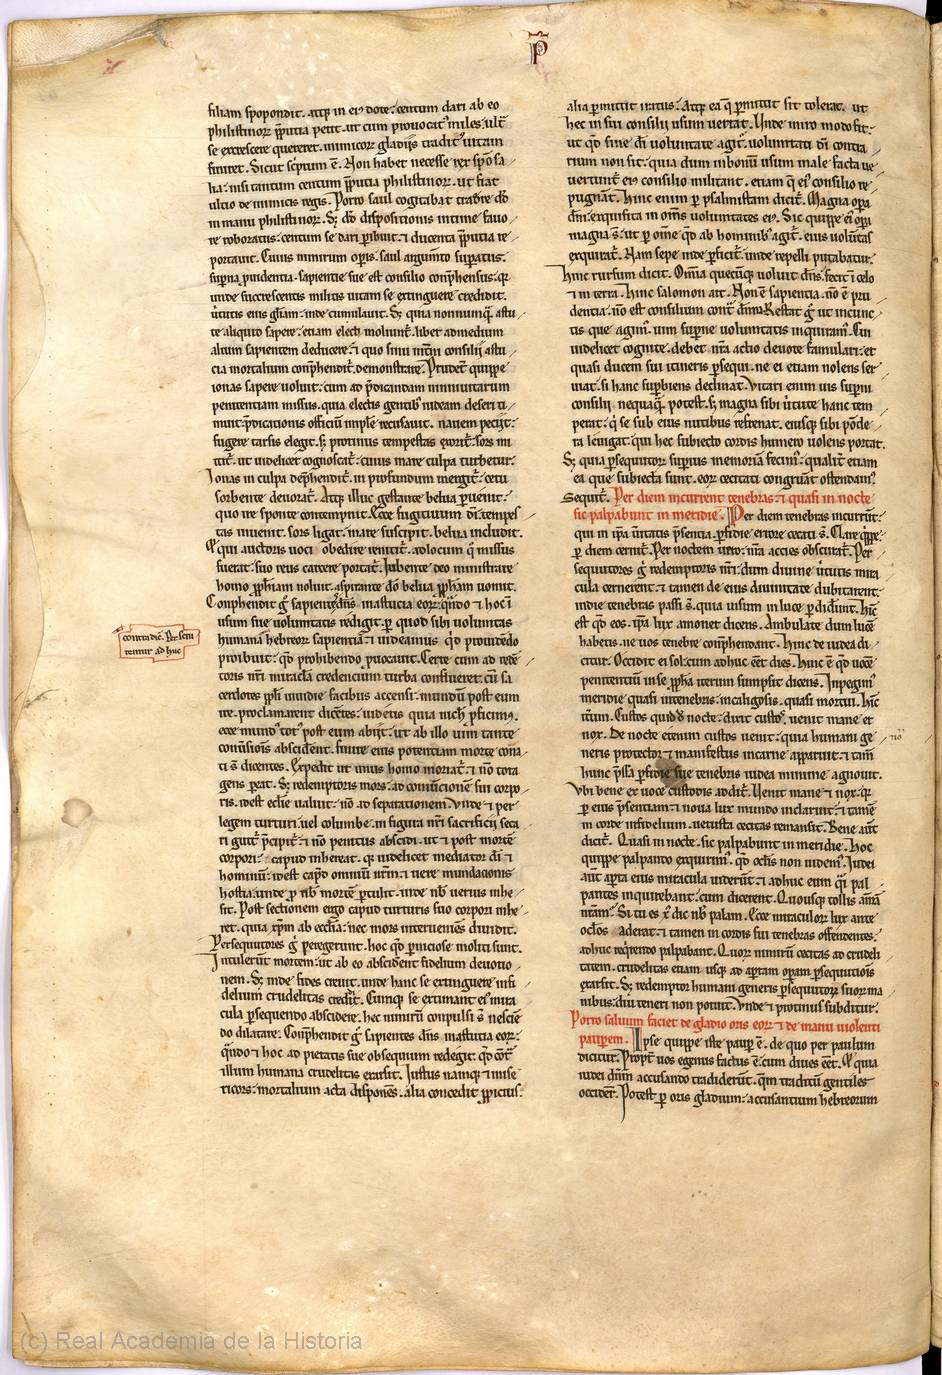 P
filiam spopondit. atq; in ei9 dote: centum dari ab eo
philistinoꝝ p̄putia petit. ut cum prouocat9 miles: ult̄
se excrescere quereret. inimicoꝝ gladiis tradit9 uitam
finiret. Sicut scptum ē. Non habet necesse rex spōsa
lia: nisi tantum centum p̄putia philistinoꝝ. ut fiat
ultio de inimicis regis. Porro saul cogitabat tradere dd̄
in manu philistinoꝝ. Sꝫ dd̄ dispositionis intime fauo
re roboratus: centum se dari ꝑibuit: ⁊ ducenta p̄putia re
portauit. Cuius nimirum oꝑis: saul argumto suꝑatus:
suꝑna prudentia. sapientie sue est consilio conp̄hensus: qꝛ
unde succrescentis militis uitam se extinguere credidit.
u̓tutis eius gl̄iam: inde cumulauit. Sꝫ quia nonnumq̄ astu
te aliquid sapere: etiam electi moliunt̄. libet ad medium
alium sapientem deducere: ⁊ quo sinu int̓ni consilii astu
cia mortalium conp̄hendit̄. demonstrare. Prudent̓ quippe
ionas sapere uoluit: cum ad p̄dicandam niniuitarum
penitentiam missus. quia electis gentib; iudeam deseri ti
muit: p̄dicationis officiū imple recusauit. nauem peciit:
fugere tarsis elegit. sꝫ protinus tempestas exorit̄: sors mi
ttit̄. ut uidelicet cognoscat̄: cuius mare culpa turbetur:
Ionas in culpa dep̄hendit̄. in profundum mergit̄: cetu
sorbente deuorat̄. Atq; illuc gestante belua ꝑuenit:
quo ire sponte contempnit. Ecce fugitiuum dī: tempes
tas inuenit. sors ligat. mare suscipit. belua includit.
Et qui auctoris uoci obedire renitit̄. ad locum q̊ missus
fuerat: suo reus carcere portat̄. Iubente deo ministrare
homo prophiam noluit. aspirante dō belua prophām uomit.
Conp̄hendit g̊ sapientes dn̄s in astucia eoꝝ: quādo ⁊ hoc ī
usum sue uoluntatis redigit: ꝑ quod sibi uoluntas
humana 
contradic̄. Perscru
temur adhuc
hebreoꝝ sapientiā: ⁊ uideamus qd̄ prouidēdo
proibuit: qd̄ prohibendo ꝓuocauit. Certe cum ad redē
toris nr̄i miracla credencium turba conflueret: cū sa
cerdotes pp̄li inuidie facibus accensi: mundū post eum
ire. proclamarent dicētes: uidetis quia nichil ꝓficim9.
ecce mund9 tot9 post eum abiit: ut ab illo uim tante
conūsionis absciderent. finire eius potentiam morte conati
sūt dicentes. Expedit ut unus homo moriat̄: ⁊ nō tota
gens ꝑeat. Sꝫ redemptoris mors: ad coniūcionem sui corpo
ris. idest eccłie ualuit: nō ad separationem. Vnde ⁊ per
legem turturi: uel columbe. in figura nr̄i sacrificii seca
ri gutt̄ p̄cipit̄: ⁊ nō penitus abscidi. ut ⁊ post mortē
corpori: capud inhereat. qꝛ uidelicet mediator dī ⁊
hominū: idest capd̄ omniū nr̄m: ⁊ uere mundacionis
hostia: unde ꝓ nob̄ mortē ꝑtulit. inde nob̄ uerius inhe
sit. Post sectionem ergo capud turturis suo corpori inhe
ret. quia xp̄m ab eccłia: nec mors interueniēs diuidit.
Persequutores g̊ peregerunt: hoc qd̄ ꝑniciose moliti sunt.
Intulerūt mortem: ut ab eo absciderent fidelium deuotio
nem. Sꝫ inde fides creuit: unde hanc se extinguere infi
delium crudelitas credit̄. Cumq; se estimant ei9 mira
cula ꝑsequendo abscidere. hec nimirū conpulsi sūt nesciē
do dilatare. Conp̄hendit g̊ sapientes dn̄s in astucia eoꝝ:
quādo ⁊ hoc ad pietatis sue obsequium redegit: qd̄ cont̄
illum humana crudelitas exarsit. Iustus namq; ⁊ mise
ricors: mortalium acta disponēs. alia concedit p̄picius:
alia ꝑmittit iratus: Atq; ea q̄ ꝑmittit sic tolerat. ut
hec in sui consilii usum uertat. Vnde miro modo fit:
ut qd̄ sine dī uoluntate agit̄: uoluntati dī contra
rium non sit: quia dum in bonū usum male facta ue
uertunt̄: ei9 consilio militant. etiam q̄ ei9 consilio re
pugnāt. Hinc enim ꝑ psalmistam dicit̄. Magna oꝑa
dn̄i: exquisita in om̄s uoluntates ei9. Sic quippe ei9 oꝑa
magna sūt: ut ꝑ om̄e qd̄ ab hominib; agit̄. eius uolūtas
exquirat̄. Nam sepe inde ꝑficit̄: unde repelli putabatur:
Hinc rursum dicit. Om̄ia quecūq; uoluit dn̄s. fecit ī celo
⁊ in terra. Hinc salomon ait. Non ē sapientia. nō ē pru
dentia. nō est consilium cont̄ dn̄m. Restat g̊ ut in cunc
tis que agim9. uim suꝑne uoluntatis inquiram9. Cui
uidelicet cognite. debet nr̄a actio deuote famulari: et
quasi ducem sui itineris ꝑsequi. ne ei etiam nolens ser
uiat. si hanc suꝑbiens declinat. Vitari enim uis suꝑni
consilii nequaq̄ potest. sꝫ magna sibi u̓tute hanc tem
perat: q̊ se sub eius nutibus refrenat. eiusq; sibi pōde
ra leuigat: qui hec subiecto cordis humero uolens portat.
Sꝫ quia ꝑsequutoꝝ suꝑius memoriā fecim9: qualit̓ etiam
ea que subiecta sunt. eoꝝ cecitati congruāt ostendam9.
Sequit̄. Per diem incurrent tenebras: ⁊ quasi in nocte
sic palpabunt in meridie. Per diem tenebras incurrūt:
qui in ip̄a ū̓itatis p̄sentia. ꝑfidie errore cecati sūt. Clare quippe:
ꝑ diem cernit̄. Per noctem uero: nr̄a acies obscurat̄. Per
sequutores g̊ redemptoris nr̄i: dum diuine u̓tutis mira
cula cernerent: ⁊ tamen de eius diuinitate dubitarent:
in die tenebras passi sūt. quia uisum in luce ꝑdidūnt. Hīc
est qd̄ eos. ip̄a lux amonet dicens. Ambulate dum lucē
habetis. ne uos tenebre conp̄hendant. Hinc de iudea di
citur. Occidit ei sol: cum adhuc eēt dies. Hinc ē qd̄ uocē
penitentiū in se. ꝓpha iterum sumpsit dicens. Inpegim9
meridie quasi in tenebris: in caligosis. quasi mortui. Hīc
it̓um. Custos quid de nocte: dixit custos. uenit mane et
nox. De nocte etenim custos uenit: quia humani ge
neris protector ⁊ manifestus in carne apparuit: ⁊ tam̄
hunc p̄ssa ꝑfidie sue tenebris iudea minime agnouit.
Vbi bene ex uoce custodis addit̄. Venit mane ⁊ nox: qꝛ
ꝑ eius p̄sentiam: ⁊ noua lux mundo inclaruit: ⁊ tamē
in corde infidelium. uetusta cecitas remansit. Bene aūt
dicit̄. Quasi in nocte. sic palpabunt in meridie. Hoc
quippe palpando exquirim9. qd̄ oclis non uidem9. Iudei
aūt aꝑta eius miracula uiderūt: ⁊ adhuc eum q̄si pal
pantes inquirebant: cum dicerent. Quousq; tollis aīam
nr̄am: Si tu es xp̄c dic nob̄ palam. Ecce miraculoꝝ lux ante
oclos aderat: ⁊ tamen in cordis sui tenebras offendentes:
adhuc reqirendo palpabant. Quoꝝ nimirū cecitas ad crudeli
tatem. crudelitas etiam usq; ad aꝑtam oꝑam ꝑsequucionis
exarsit. Sꝫ redemptor humani generis ꝑsequutoꝝ suoꝝ ma
nibus: diu teneri non potuit. Vnde ⁊ protinus subditur.
Porro saluum faciet de gladio oris eoꝝ: ⁊ de manu uiolenti
pauꝑem. Ipse quippe iste pauꝑ ē. de quo per paulum
dicitur. Propt̓ uos egenus factus ē: cum diues eēt. Et quia
iudei dn̄m accusando tradiderūt. quē traditū gentiles
occiderunt. Potest ꝑ oris gladium: accusantium hebreorum